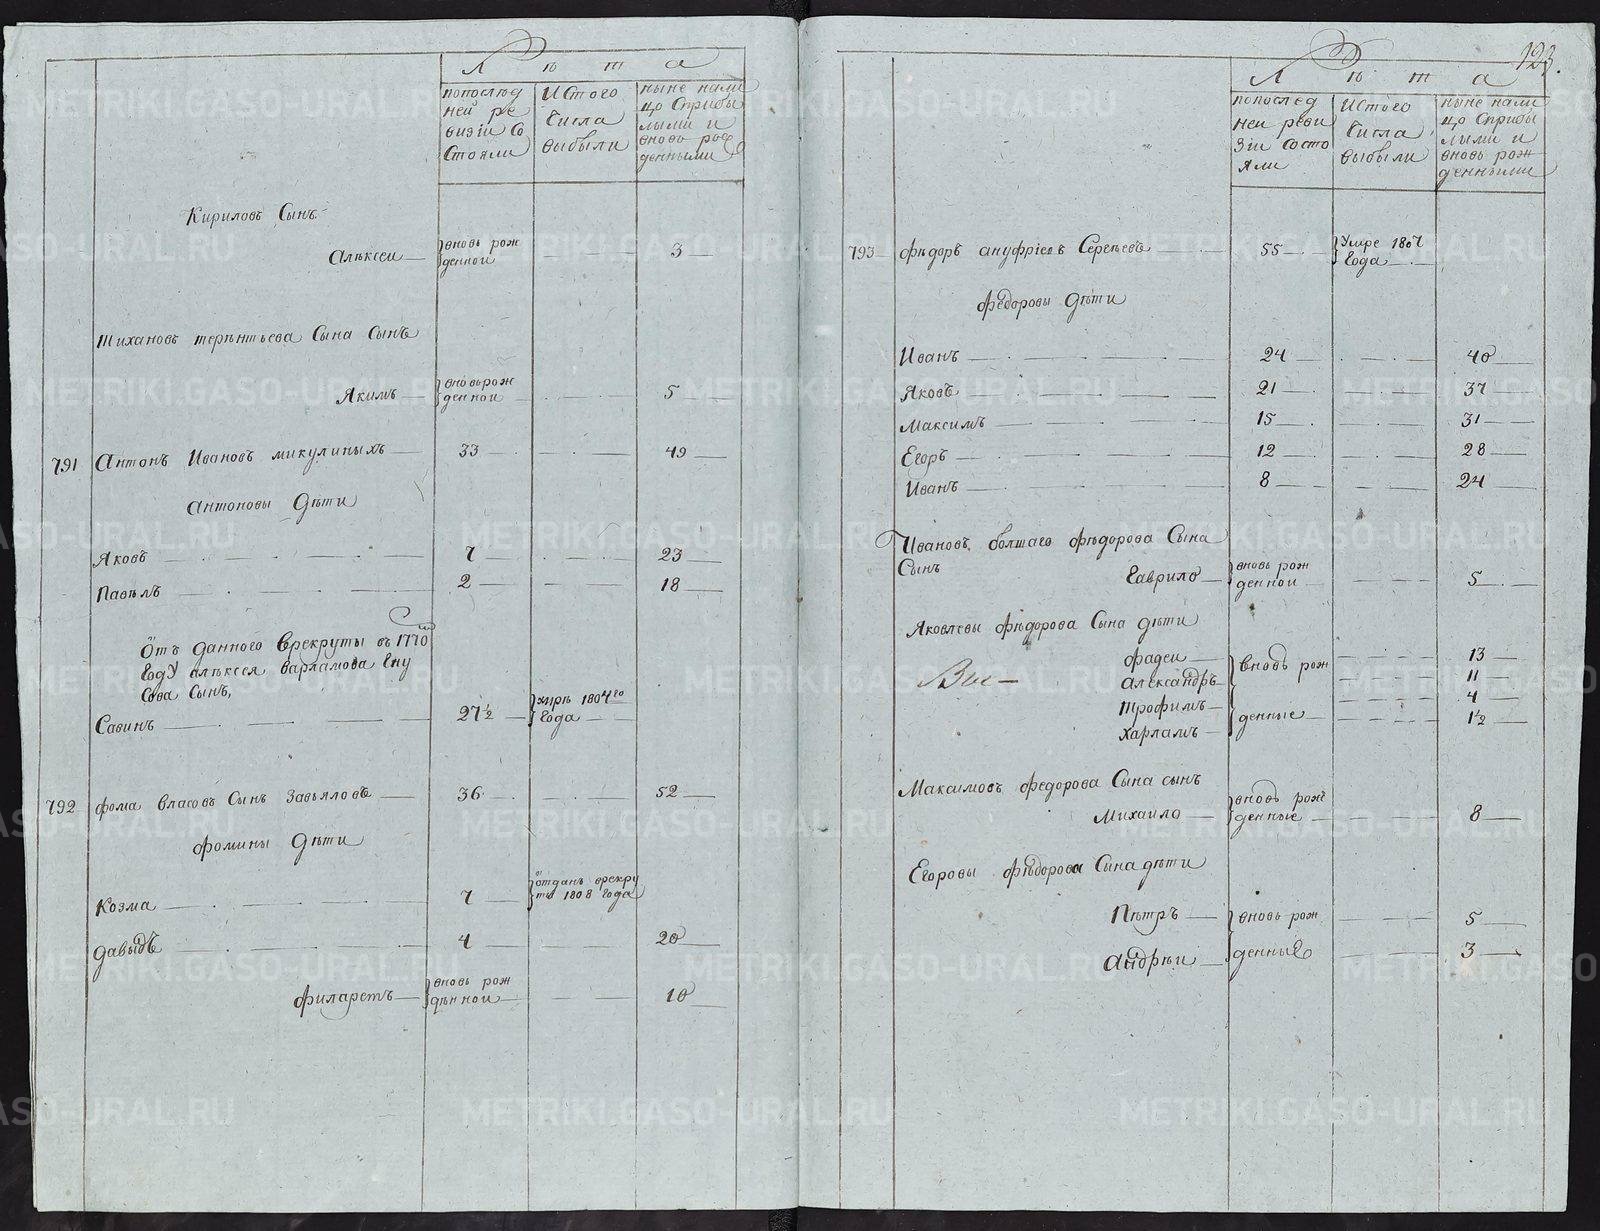 Лѣта
попослѣд
ней ре
визіи Со
Стояли
ИСтого
Числа
выбыли
ныне нали
цо Сприбы
лыми и
вновь рож
денными
Кириловъ Сынъ
Алѣксеи
вновь рож
денной
3
Тихановъ терѣнтьева Сына Сынъ
Якимъ
вновьрож
денной
5
791 Антонъ Ивановъ микулиныхъ 33 49
Антоновы Дѣти
Яковъ 7 23
Павѣлъ 2 18
Отъ данного Врекруты въ 1770
Году алѣксея варламова
Сова Сынъ,
Савинъ 27 1/2
умре 1804го
Года
792 Фома власовъ Сынъ Завьяловъ 36 52
Фомины Дѣти
Козма 7
отданъ врекру
ты 1808 Года
Давыдъ 4 20
Филаретъ
вновь рож
дѣнной
10
123.
Лѣта
попослед
ней реви
Зіи состо
яли
ИСтого
Числа
выбыли
ныне нали
цо Сприбы
лыми и
вновь рож
денными
793 Фѣдоръ ануфріевъ Сергѣевъ 55
Умре 1807
Года
Федоровы Дѣти
Иванъ 24 40
Яковъ 21 37
Максимъ 15 31
Егоръ 12 28
Иванъ 8 24
Ивановъ болшаго фѣдорова Сына
Сынъ
Гаврило
вновь рож
денной
5
Яковлевы фѣдорова Сына дѣти
Фадеи 13
Александръ 11
Трофимъ 4
Харламъ 1 1/2
вновь рож
денные
Максимовъ федорова Сына сынъ
Михаило
вновь рож
денные
8
Егоровы фѣдорова Сына дѣти
Пѣтръ 5
Андрѣи 3
вновь рож
денные
METRIKI.GASO-URAL.RU